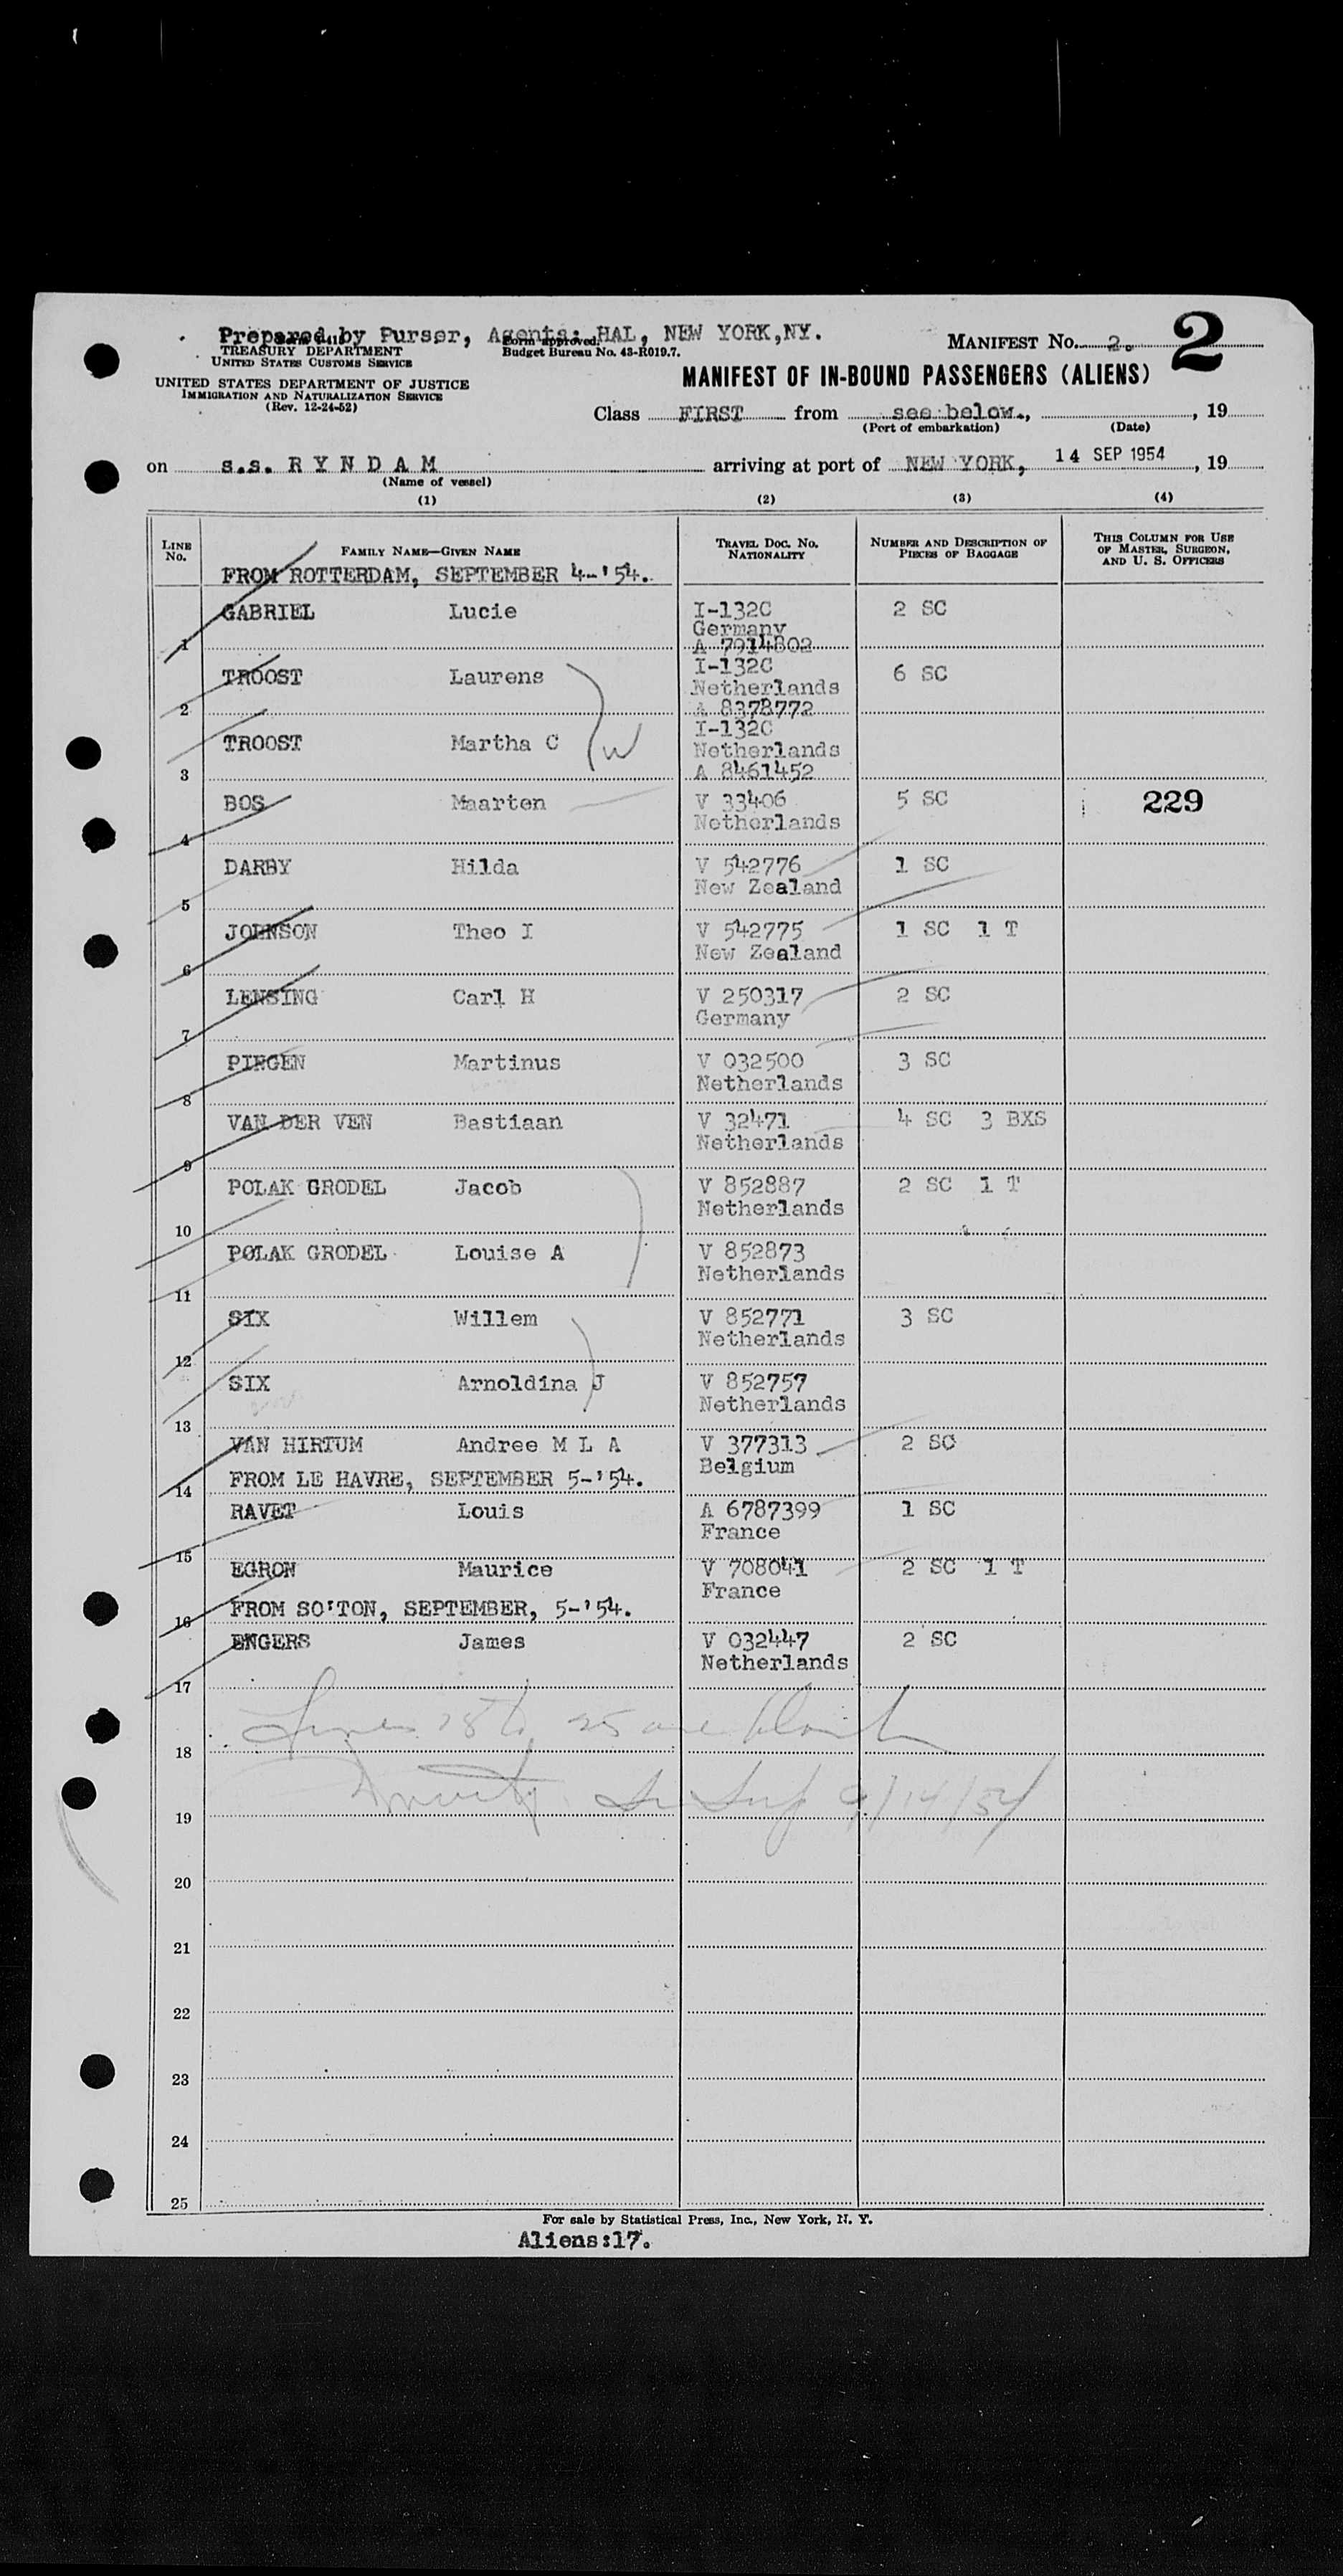 Prepared by Purser, Agents: HAL, NEW YORK,NY.
TREASURY DEPARTMENT
UNITED STATES CUSTOMS SERVICE
Form approved.
Budget Bureau No. 43-R019.7.
MANIFEST NO. 2.
2
UNITED STATES DEPARTMENT OF JUSTICE
IMMIGRATION AND NATURALIZATION SERVICE
(Rev. 12-24-52)
MANIFEST OF IN-BOUND PASSENGERS (ALIENS)
Class FIRST from see below., , 19
(Port of embarkation) (Date)
on s.s. R Y N D A M arriving at port of NEW YORK, 14 SEP 1954 , 19
(Name of vessel)
(1) (2) (3) (4)
LINE NO. FAMILY NAME—GIVEN NAME TRAVEL DOC. NO. NATIONALITY NUMBER AND DESCRIPTION OF PIECES OF BAGGAGE THIS COLUMN FOR USE OF MASTER, SURGEON, AND U. S. OFFICERS
FROM ROTTERDAM, SEPTEMBER 4-'54.
GABRIEL Lucie I-132C 2 SC
Germany
1 A 7914802
TROOST Laurens I-132C 6 SC
Netherlands
2 A 8378772
TROOST Martha C W I-132C
Netherlands
3 A 8461452
BOS Maarten V 33406 5 SC 229
Netherlands
4
DARBY Hilda V 542776 1 SC
New Zealand
5
JOHNSON Theo I V 542775 1 SC 1 T
New Zealand
6
LENSING Carl H V 250317 2 SC
Germany
7
PIEGEN Martinus V 032500 3 SC
Netherlands
8
VAN DER VEN Bastiaan V 32471 4 SC 3 BXS
Netherlands
9
POLAK GRODEL Jacob V 852887 2 SC 1 T
Netherlands
10
POLAK GRODEL Louise A V 852873
Netherlands
11
SIX Willem V 852771 3 SC
Netherlands
12
SIX Arnoldina J V 852757
Netherlands
13
VAN HIRTUM Andree M L A V 377313 2 SC
Belgium
FROM LE HAVRE, SEPTEMBER 5-'54.
14
RAVET Louis A 6787399 1 SC
France
15
EGRON Maurice V 708041 2 SC 1 T
France
FROM SO'TON, SEPTEMBER, 5-'54.
16
ENGERS James V 032447 2 SC
Netherlands
17
Lines 18 to 25 are blank
18
9/14/54
19
20
21
22
23
24
25
For sale by Statistical Press, Inc., New York, N. Y.
Aliens:17.